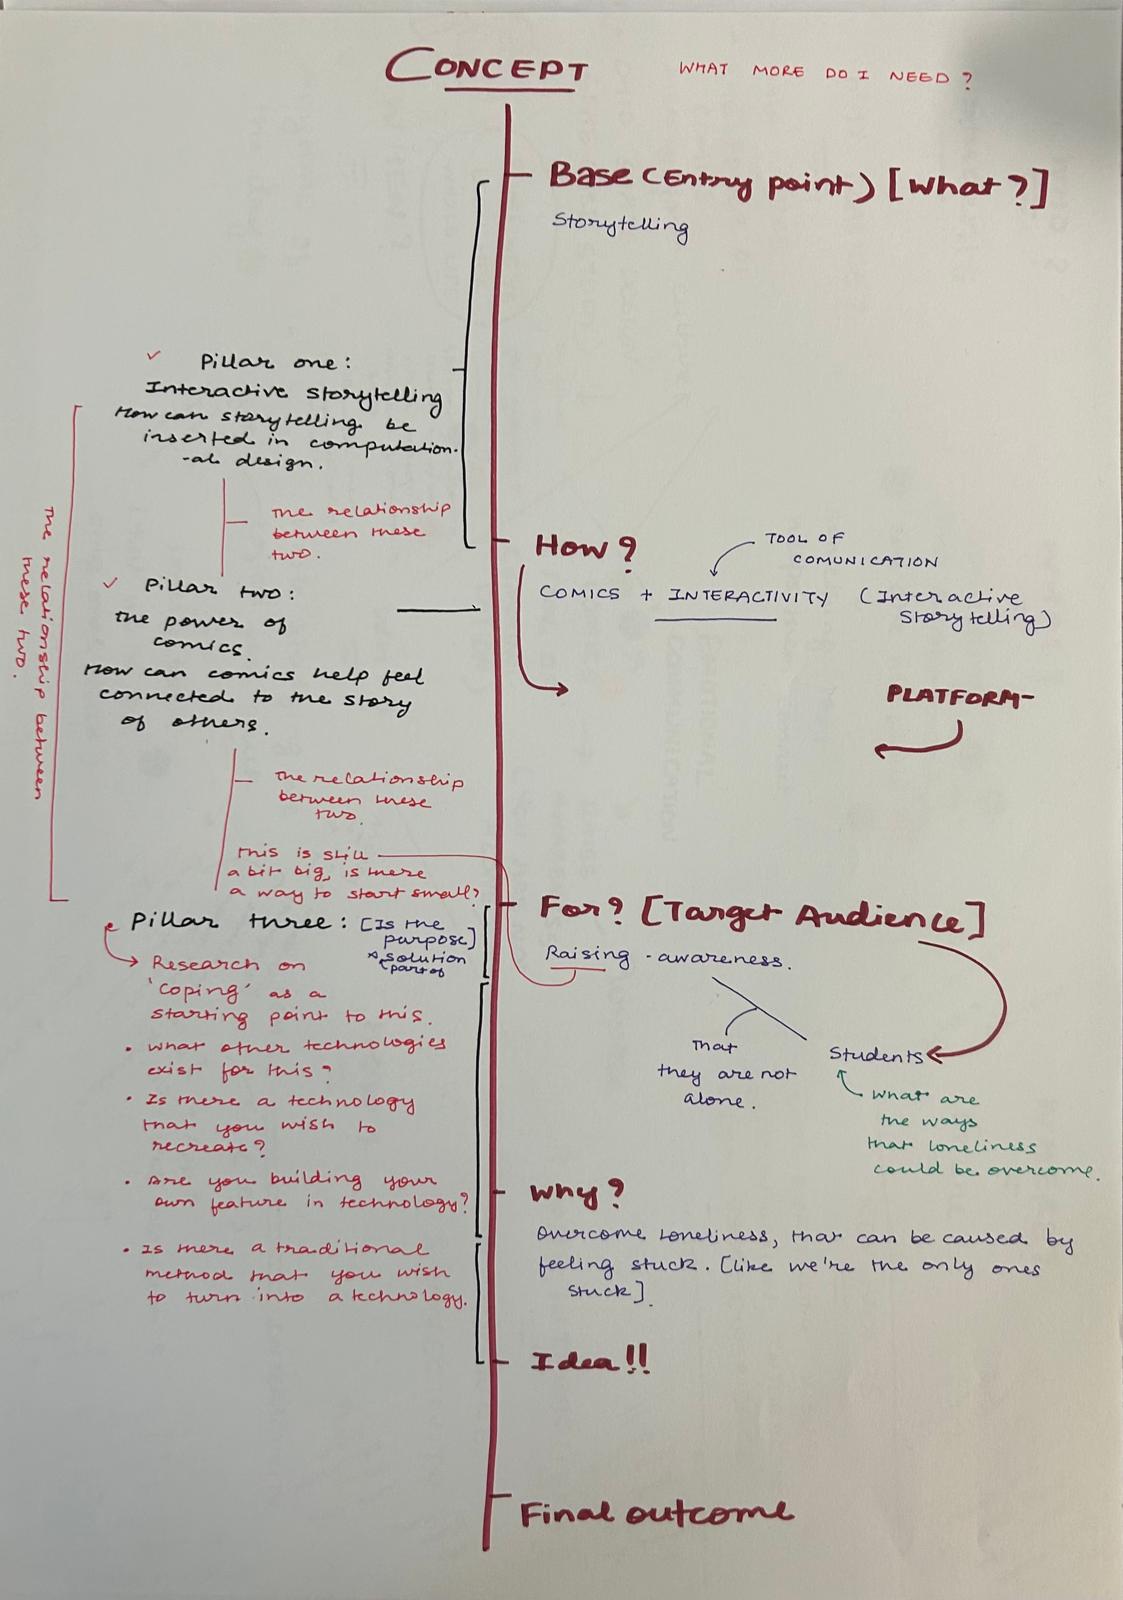 CONCEPT
WHAT MORE DO I NEED?
Base (Entry point) [What?]
Storytelling
✓ Pillar one:
Interactive storytelling
How can storytelling be
inserted in computation-
-al design.
The relationship
between these
two.
The relationship between
these two.
✓ Pillar two:
the power of
comics.
How can comics help feel
connected to the story
of others.
How?
TOOL OF
COMUNICATION
COMICS + INTERACTIVITY (Interactive
Storytelling)
PLATFORM-
The relationship
between these
two.
This is still
a bit big, is there
a way to start small?
Pillar three: [Is the
purpose]
solution
part of
Research on
'coping' as a
starting point to this.
• What other technologies
exist for this?
• Is there a technology
that you wish to
recreate?
• Are you building your
own feature in technology?
• Is there a traditional
method that you wish
to turn into a technology.
For? [Target Audience]
Raising - awareness.
That
they are not
alone.
Students
What are
the ways
that loneliness
could be overcome.
Why?
Overcome loneliness, that can be caused by
feeling stuck. [like we're the only ones
stuck].
Idea!!
Final outcome